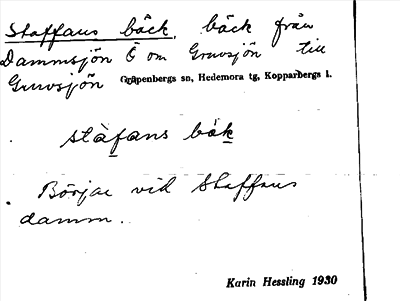 Staffans bäck, bäck från
Dammsjön Ö om Gruvsjön till
Gruvsjön Garpenbergs sn, Hedemora tg, Kopparbergs l.
stàfans bäk
Börjar vid Staffans
damm.
Karin Hessling 1930